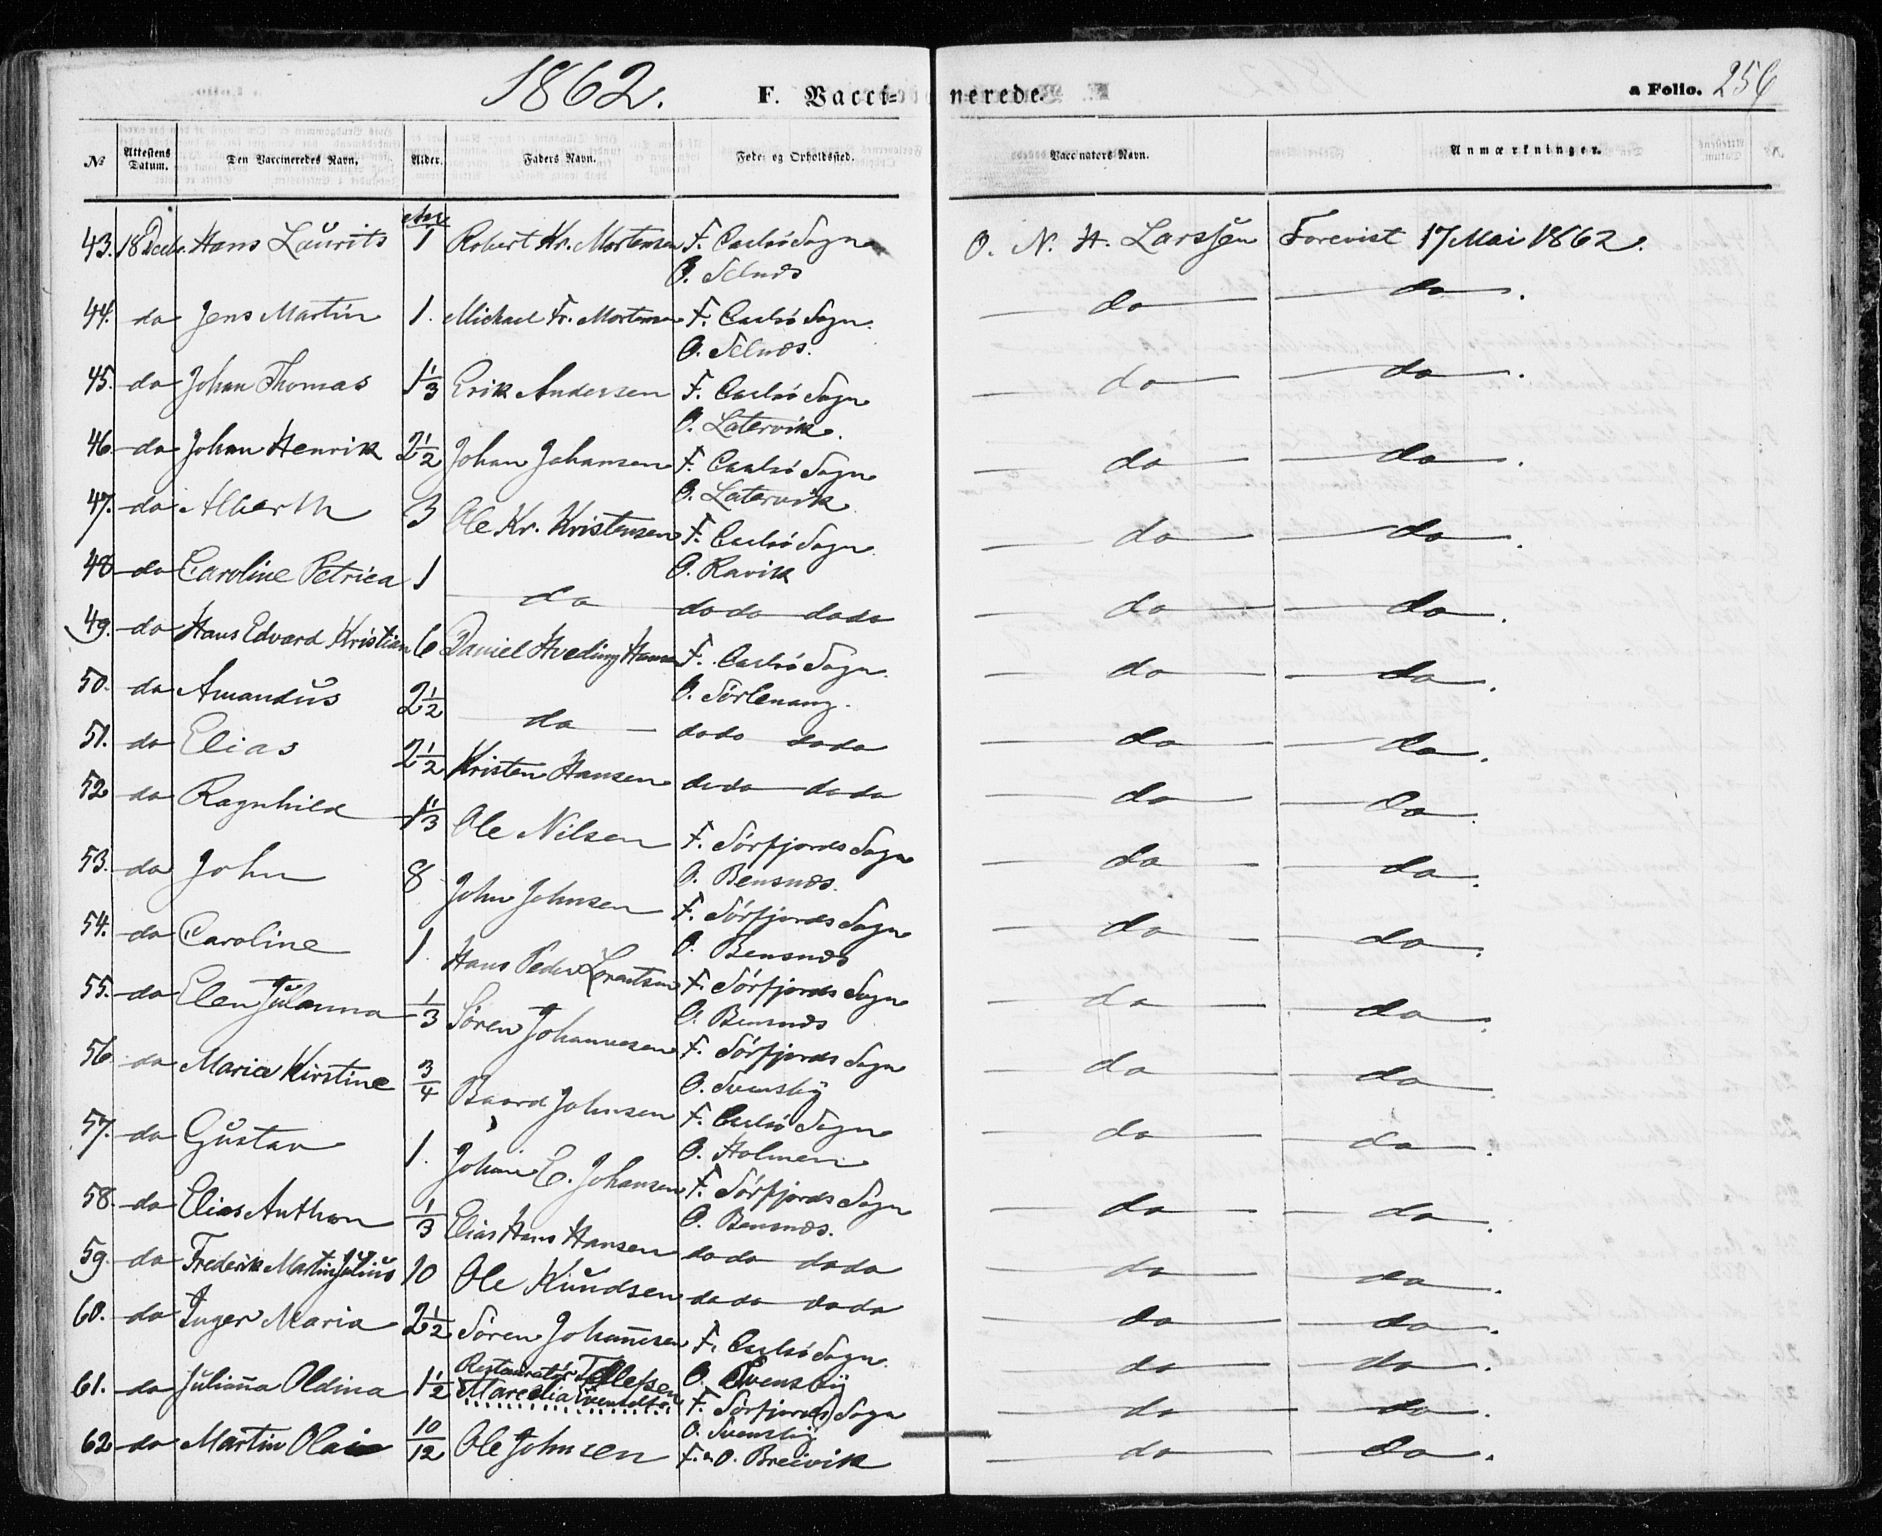 1862.
F. Vaccinerede.
a Folio. 256
No
Attestens Datum.
Den Vaccineredes Navn.
Alder.
Faders Navn.
Føde- og Opholdssted.
Vaccinators Navn.
Anmærkninger.
43. 18 Decbr. Hans Laurits 1 Robert Kr. Mortensen F. Carlsö Sogn O. N. H. Larssen Forevist 17 Mai 1862.
O. Selnæs
44. do Jens Martin 1. Michael Fr. Mortensen F. Carlsö Sogn. do do.
O. Selnæs.
45. do Johan Thomas 1 1/3 Erik Andersen F. Carlsö Sogn do do.
O. Latervik.
46. do Johan Henrik 2 1/2 Johan Johansen F. Carlsö Sogn do do.
O. Latervik
47. do Alberth 3 Ole Kr. Kristensen F. Carlsö Sogn do do.
O. Ravik
48 do Caroline Petrica 1 do do do do do do do.
49. do Hans Edvard Kristian 6 Daniel Hveding Hansen F. Carlsö Sogn. do do.
O. Sörlenang.
50. do Amandus 2 1/2 do do do do do do do.
51. do Elias 2 1/2 Kristen Hansen do do do do do do.
52 do Ragnhild 1 1/3 Ole Nilsen F. Sörfjords Sogn do do.
O. Bensnæs.
53. do John 8 John Johnsen F. Sörfjords Sogn do do.
O. Bensnæs
54. do Caroline 1. Hans Peder Lorentsen F. Sörfjords Sogn do do.
O. Bensnæs
55. do Elen Julanna 1/3 Sören Johannesen F. Sörfjords Sogn do do.
O. Svensby
56. do Marie Kirstine 3/4 Baard Johnsen F. Carlsö Sogn do do.
O. Holmen
57. do Gustav 1. Johan E. Johansen F. Sörfjords Sogn do do.
O. Bensnæs.
58. do Elias Anthon 1/3 Elias Hans Hansen do do do do do do.
59. do Frederik Martin Julius 10 Ole Knudsen do do do do do do.
60. do Inger Maria 2 1/2 Sören Johannesen F. Carlsö Sogn. do do.
O. Svensby
Restauratör Tollefsen
61. do Julianna Oldina 1 1/2 Marcelia F. Sörfjords Sogn do do.
O. Svensby
62 do Martin Olai 10/12 Ole Johnsen F. & O. Breivik do do.